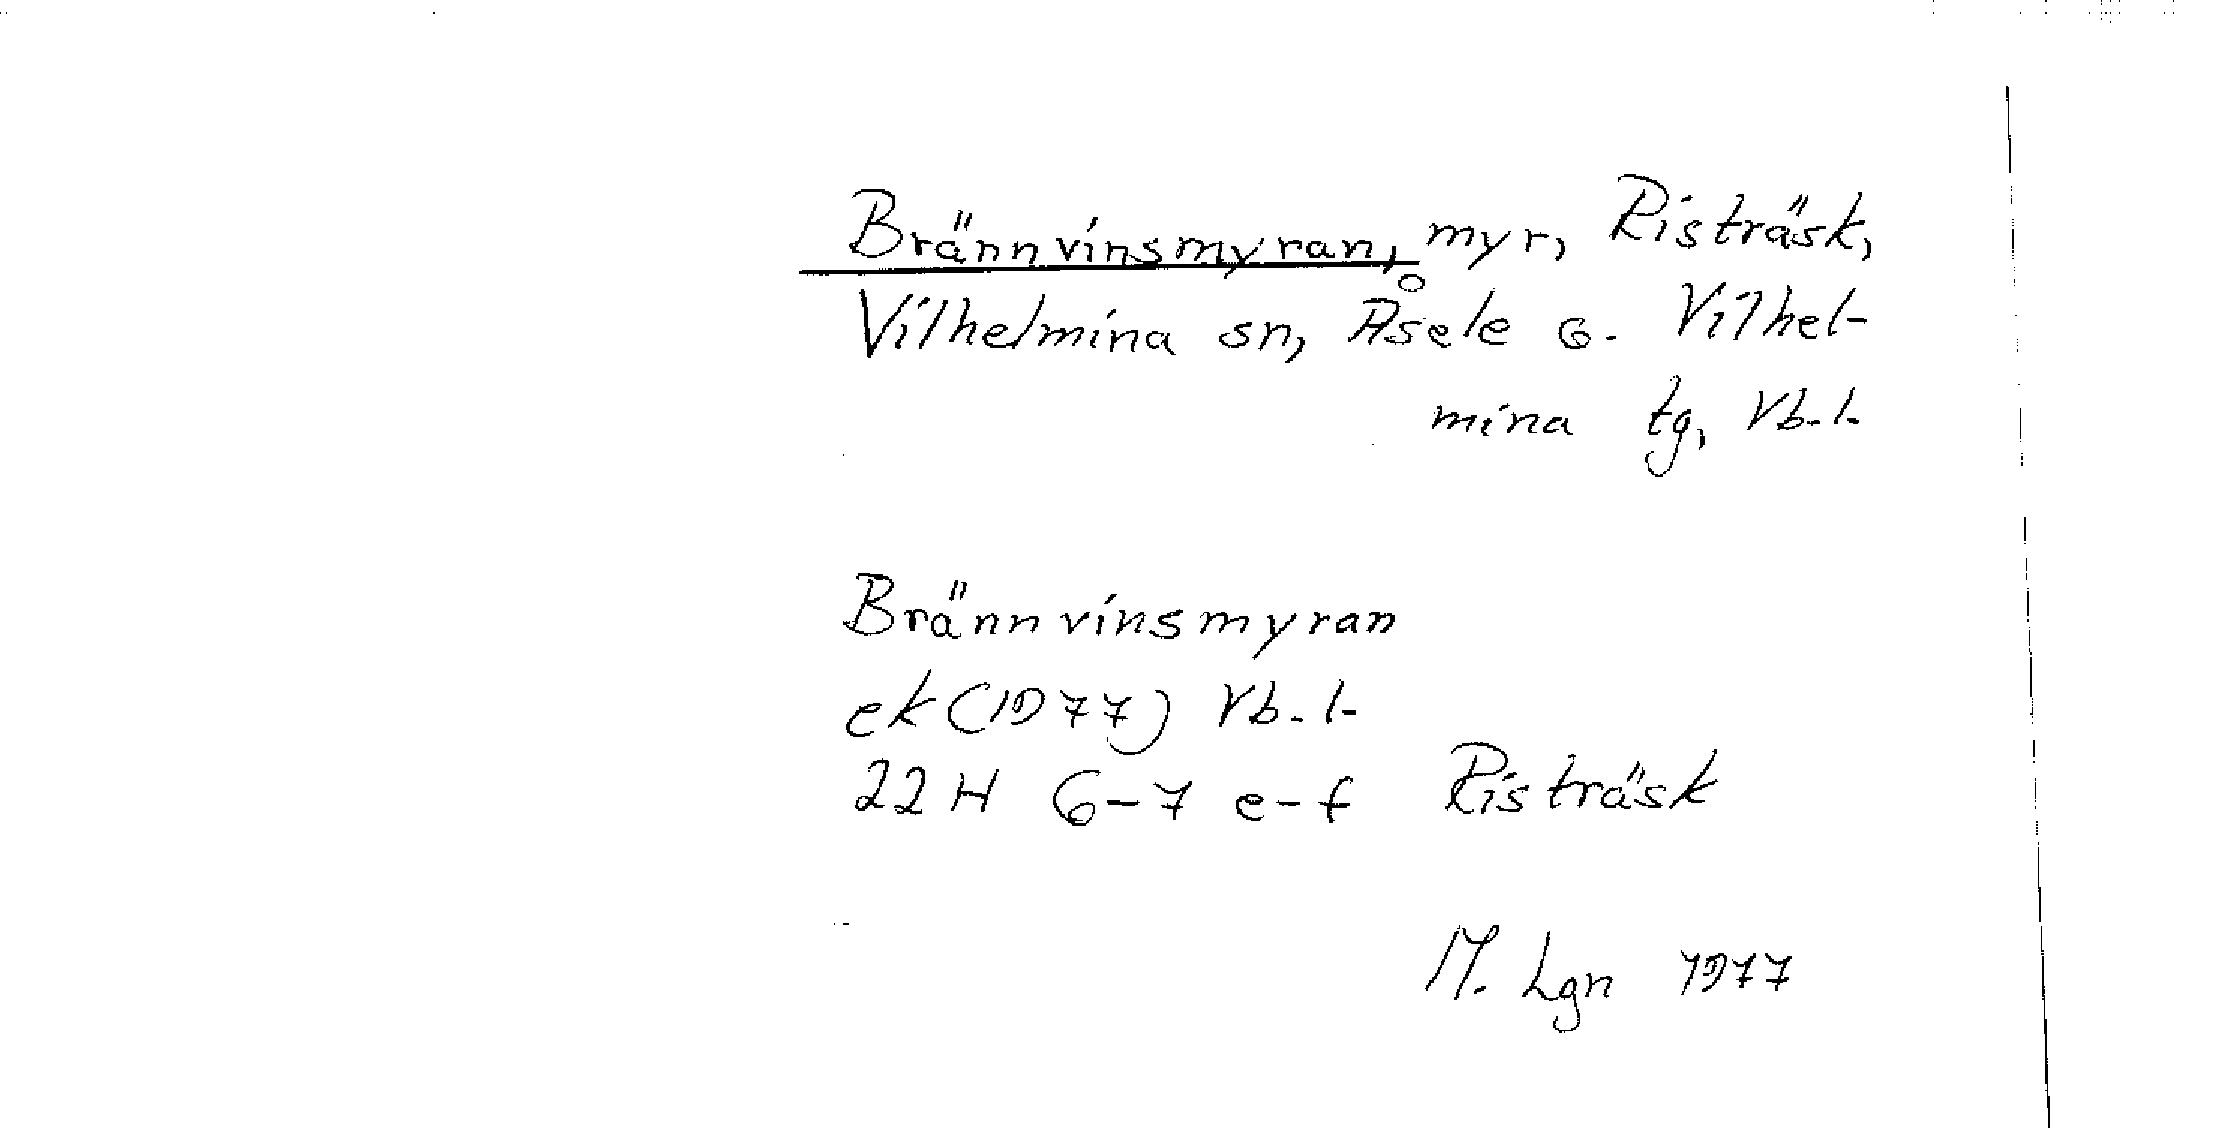 Brännvinsmyran, myr, Risträsk,
Vilhelmina sn, Åsele o. Vilhel-
mina tg, Vb. l.
Brännvinsmyran
ek (1977) Vb. l.
22H 6-7 e-f Risträsk
M. Lgn 1977